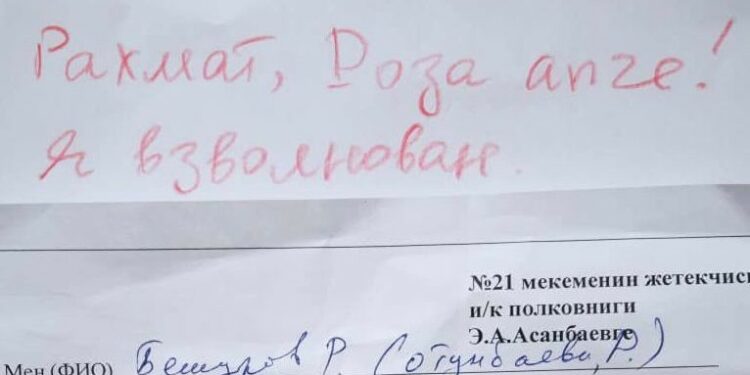 Рахмат, Роза апге!
Я взволнован.
№21 мекеменин жетекчиси
и/к полковниги
Э.А.Асанбаевге
Мен (ФИО) Бешуров Р. (Отунбаева, Р.)